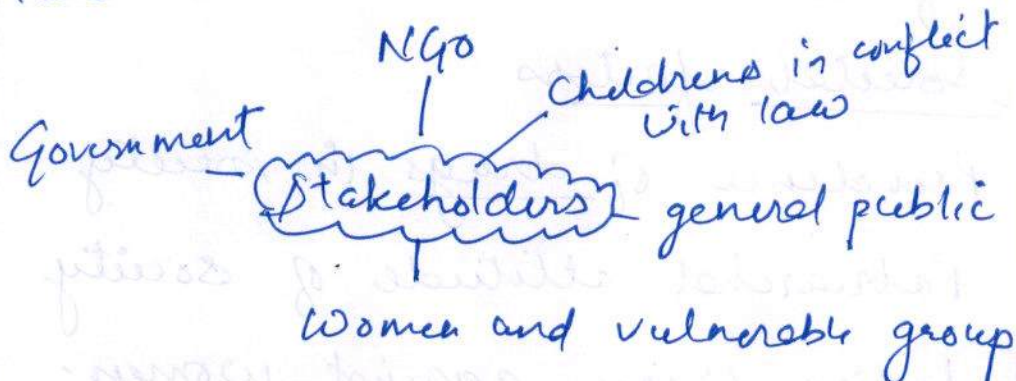 NGO
Childrens in conflict
with law
Government
Stakeholders
general public
Women and vulnerable group